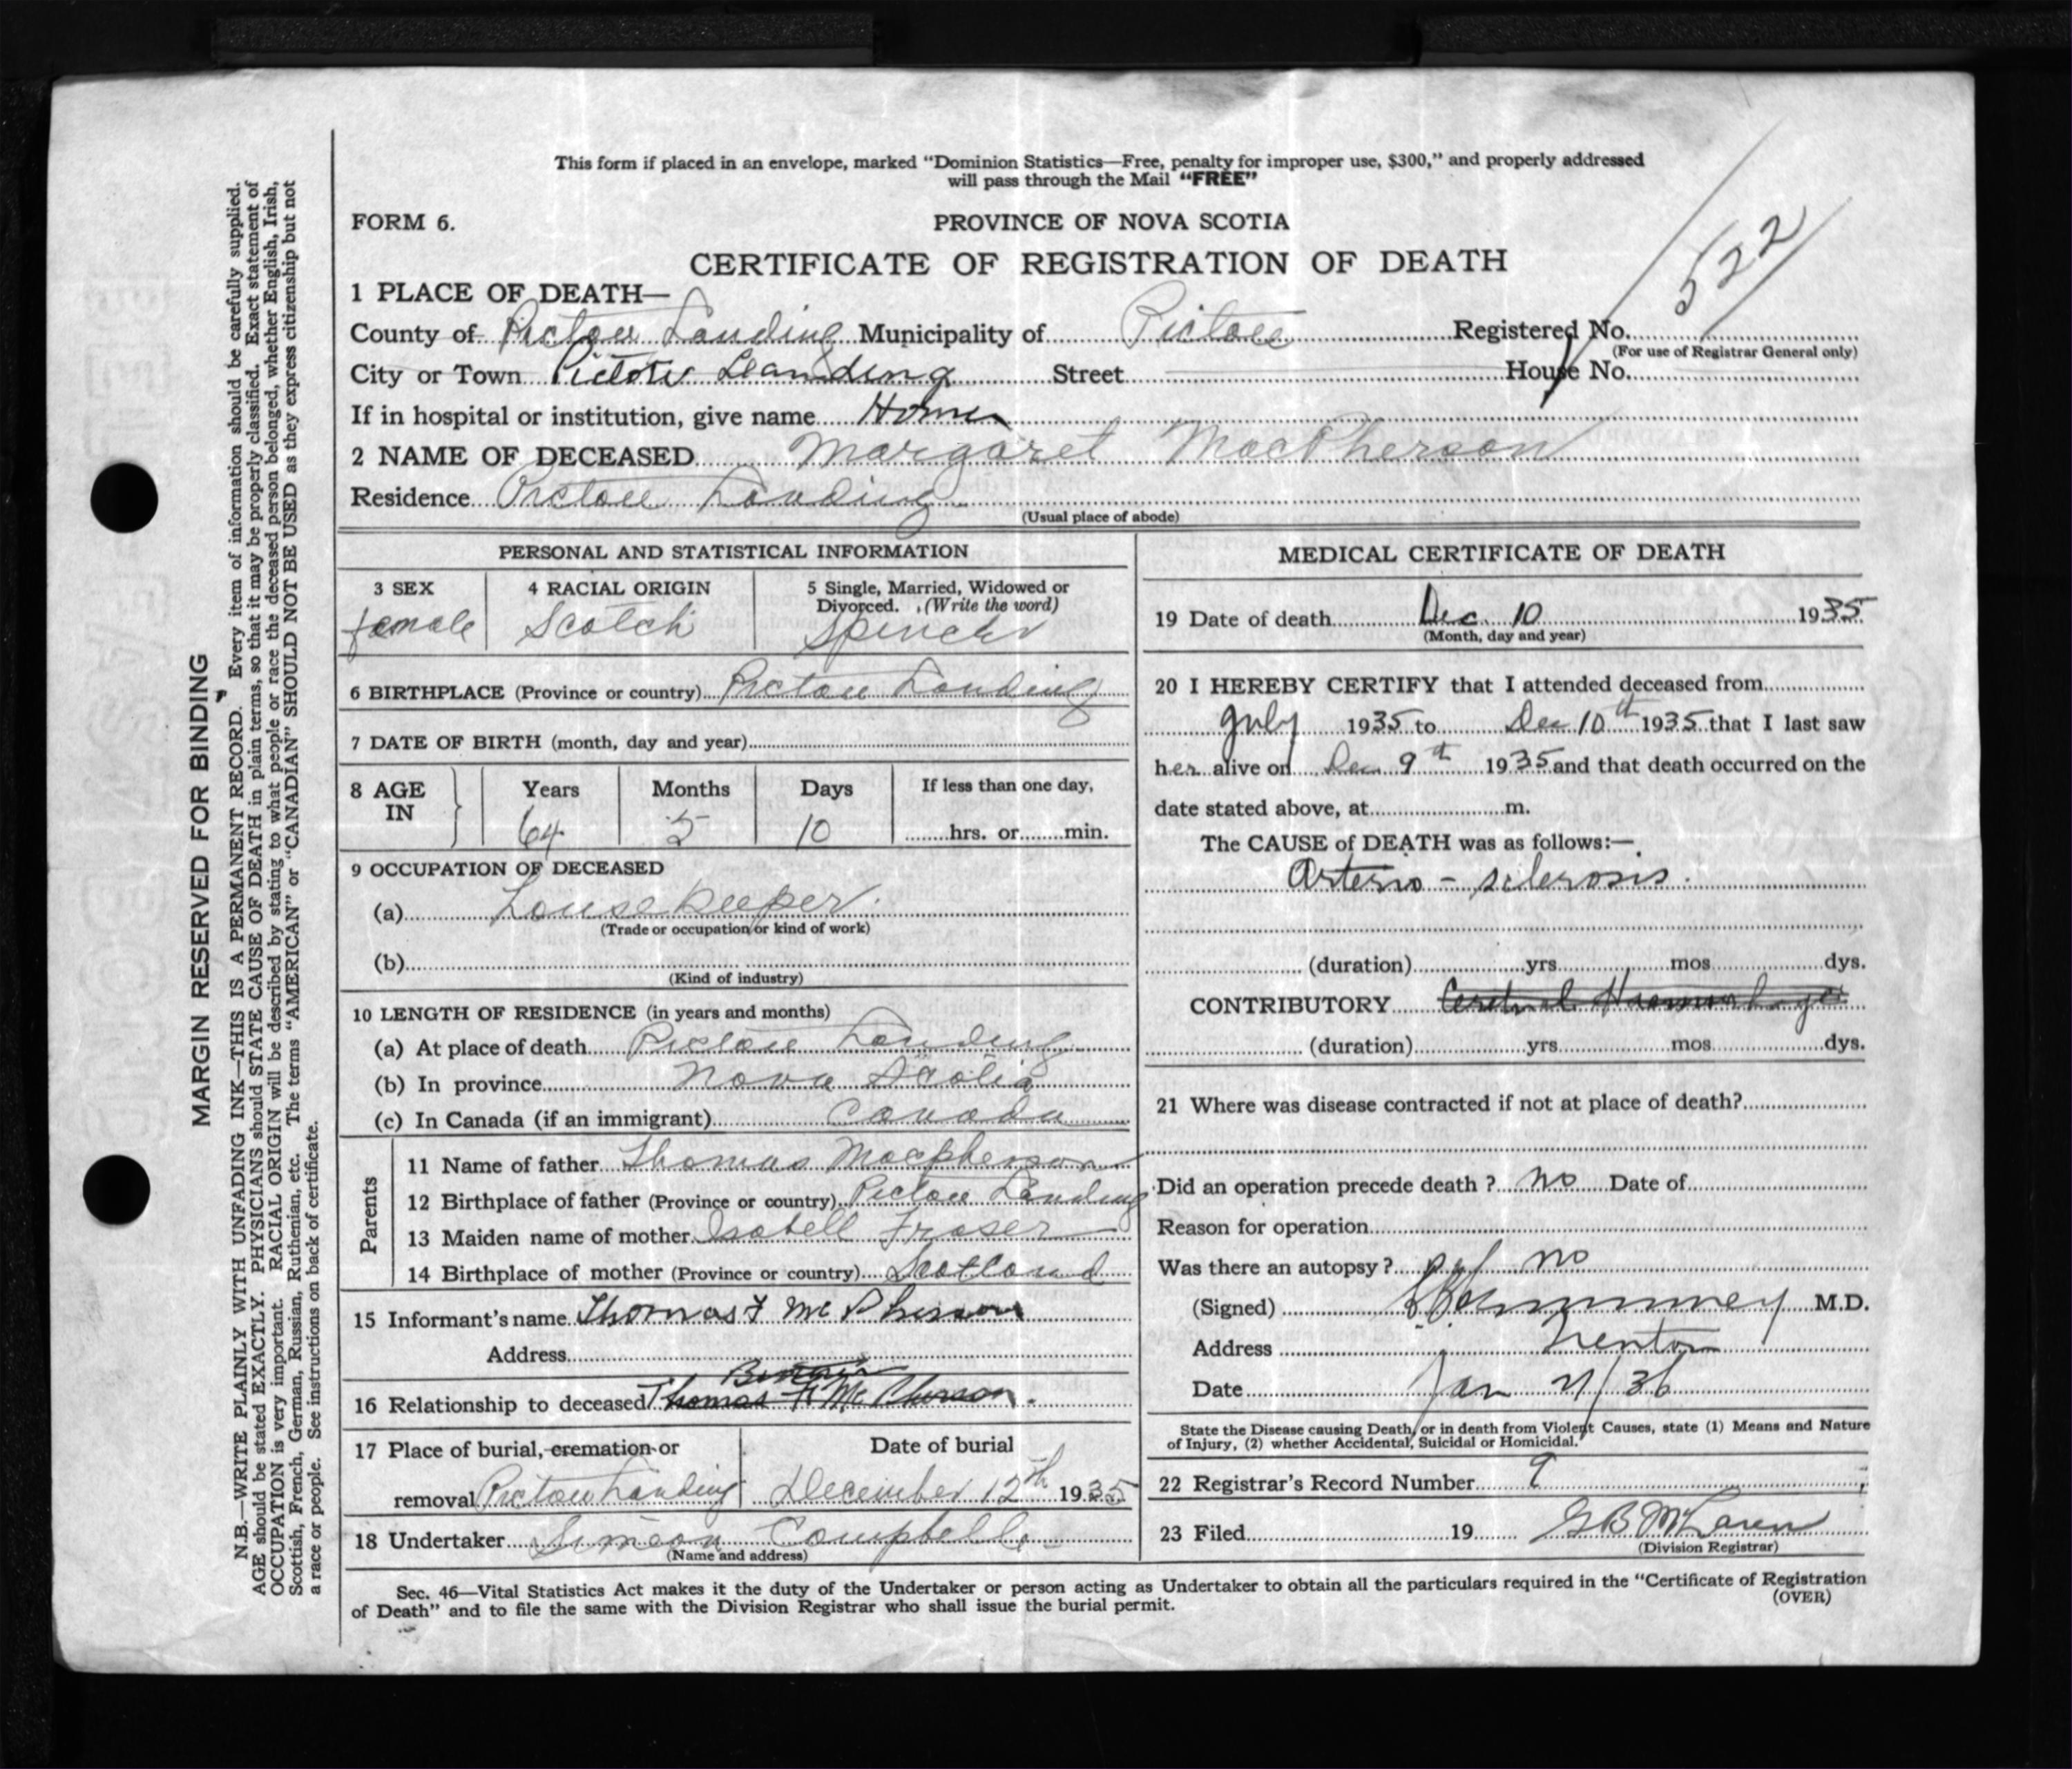 This form if placed in an envelope, marked “Dominion Statistics—Free, penalty for improper use, $300,” and properly addressed
will pass through the Mail “FREE”
FORM 6.
PROVINCE OF NOVA SCOTIA
522
CERTIFICATE OF REGISTRATION OF DEATH
1 PLACE OF DEATH—
County of Pictou Landing Municipality of Pictou Registered No.
(For use of Registrar General only)
City or Town Pictou Leanding Street House No.
If in hospital or institution, give name Home
2 NAME OF DECEASED Margaret MacPherson
Residence Pictou Landing
(Usual place of abode)
PERSONAL AND STATISTICAL INFORMATION
3 SEX
female
4 RACIAL ORIGIN
Scotch
5 Single, Married, Widowed or
Divorced. (Write the word)
6 BIRTHPLACE (Province or country) Pictou Landing
7 DATE OF BIRTH (month, day and year)
8 AGE IN
Years Months Days If less than one day,
64 5 10 hrs. or min.
9 OCCUPATION OF DECEASED
(a) Housekeeper
(Trade or occupation or kind of work)
(b)
(Kind of industry)
10 LENGTH OF RESIDENCE (in years and months)
(a) At place of death Pictou Landing
(b) In province Nova Scotia
(c) In Canada (if an immigrant) Canada
Parents
11 Name of father Thomas Macpherson
12 Birthplace of father (Province or country) Pictou Landing
13 Maiden name of mother Isabell Fraser
14 Birthplace of mother (Province or country) Scotland
15 Informant's name Thomas F McPherson
Address
16 Relationship to deceased Thomas F McPherson
17 Place of burial, cremation or Date of burial
removal Pictou Landing December 12th 1935
18 Undertaker Simeon Campbell
(Name and address)
MEDICAL CERTIFICATE OF DEATH
19 Date of death Dec. 10 1935
(Month, day and year)
20 I HEREBY CERTIFY that I attended deceased from
July 1935 to Dec 10th 1935 that I last saw
her alive on Dec 9th 1935 and that death occurred on the
date stated above, at m.
The CAUSE of DEATH was as follows:—
Arterio - sclerosis.
(duration) yrs mos dys.
CONTRIBUTORY Cerebral Haemorrhage
(duration) yrs mos dys.
21 Where was disease contracted if not at place of death?
Did an operation precede death ? no Date of
Reason for operation
Was there an autopsy ? no
(Signed) M.D.
Address Trenton
Date Jan 21/36
State the Disease causing Death, or in death from Violent Causes, state (1) Means and Nature
of Injury, (2) whether Accidental, Suicidal or Homicidal.
22 Registrar's Record Number 9
23 Filed 19 G B McLaren
(Division Registrar)
Sec. 46—Vital Statistics Act makes it the duty of the Undertaker or person acting as Undertaker to obtain all the particulars required in the “Certificate of Registration
of Death” and to file the same with the Division Registrar who shall issue the burial permit.
(OVER)
MARGIN RESERVED FOR BINDING
N.B.—WRITE PLAINLY WITH UNFADING INK—THIS IS A PERMANENT RECORD. Every item of information should be carefully supplied.
AGE should be stated EXACTLY. PHYSICIANS should STATE CAUSE OF DEATH in plain terms, so that it may be properly classified. Exact statement of
OCCUPATION is very important. RACIAL ORIGIN will be described by stating to what people or race the deceased person belonged, whether English, Irish,
Scottish, French, German, Russian, Ruthenian, etc. The terms “AMERICAN” or “CANADIAN” SHOULD NOT BE USED as they express citizenship but not
a race or people. See instructions on back of certificate.